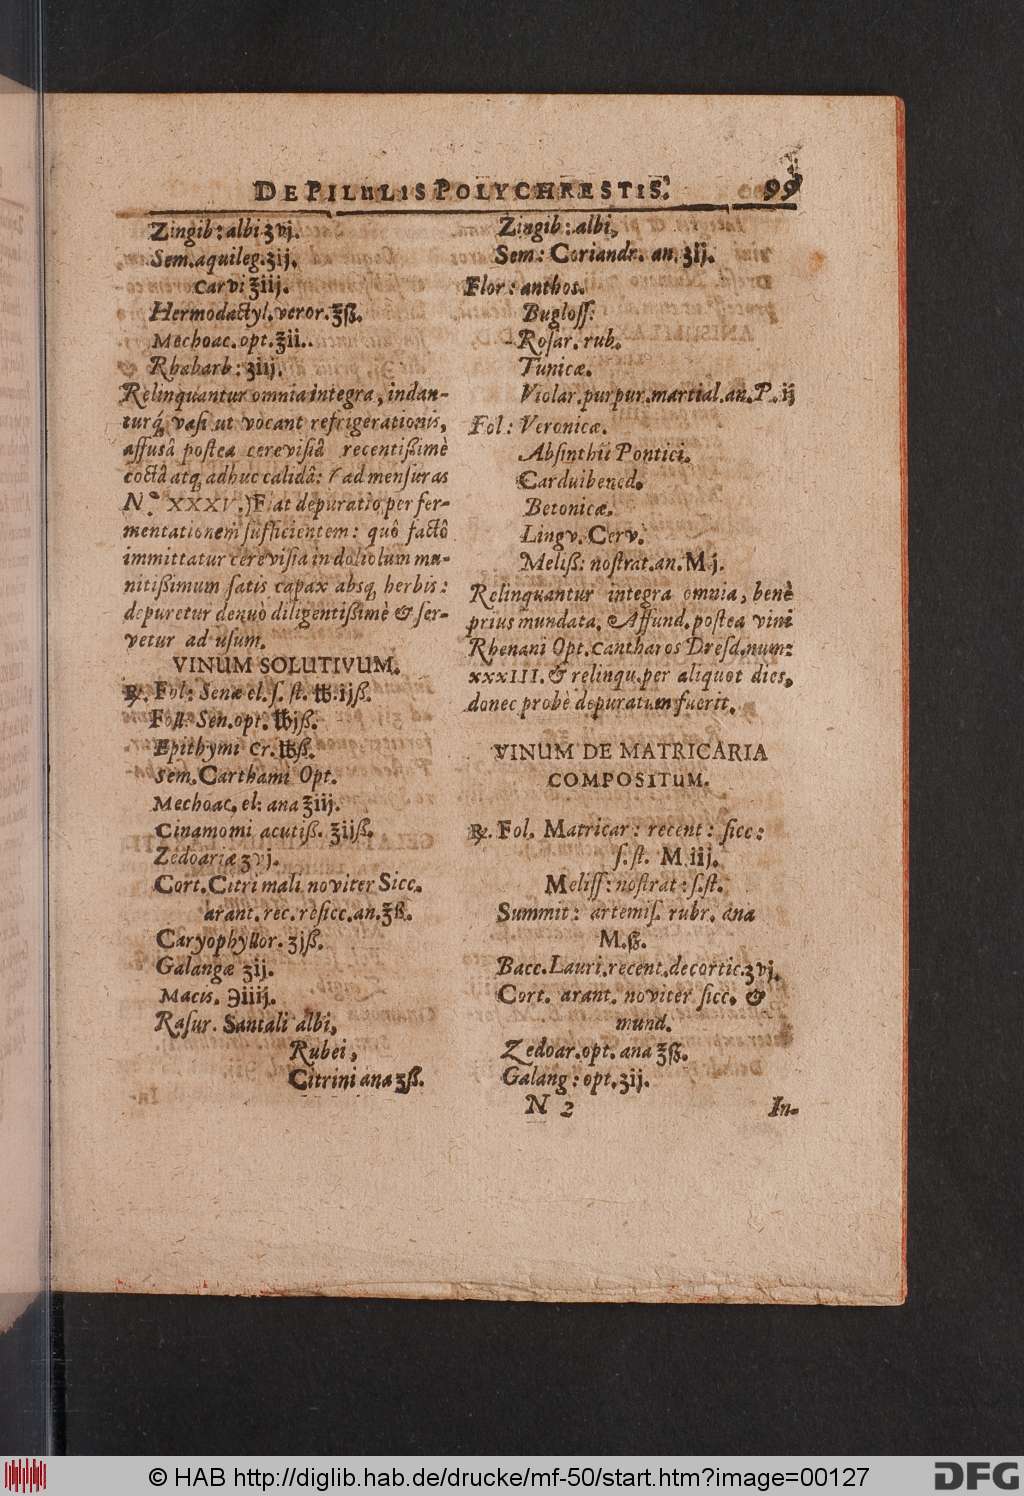 DE PILULIS POLYCHRÆSTIS. 99
Zingib: albi ʒvj.
Sem. aquileg. ʒij.
Carvi ℥iij.
Hermodactyl. veror. ℥ß.
Mechoac. opt. ℥ii.
Rhabarb: ʒiij.
Relinquantur omnia integra, indan-
turq́; vasi ut vocant refrigerationis,
affusâ postea cerevisiâ recentißimè
coctâ atq; adhuc calidâ: (ad mensuras
N° XXXV.) Fiat depuratio per fer-
mentationem sufficientem: quô factô
immittatur cerevisia in doliolum mu-
nitißimum satis capax absq; herbis:
depuretur denuò diligentißimè & ser-
vetur ad usum.
VINUM SOLUTIVUM.
℞. Fol: Senæ el. s. st. ℔.ijß.
Foll. Sen. opt. ℔jß.
Epithymi Cr. ℔ß.
Sem. Carthami Opt.
Mechoac. el: ana ℥iij.
Cinamomi acutiß. ℥ijß.
Zedoariæ ʒvj.
Cort. Citri mali noviter Sicc.
arant. rec. resicc. an. ℥ß.
Caryophyllor. ʒjß.
Galangæ ʒij.
Macis. ℈iiij.
Rasur. Santali albi,
Rubei,
Citrini ana ʒß.
Zingib: albi,
Sem: Coriandr. an. ʒij.
Flor: anthos.
Bugloss:
Rosar. rub.
Tunicæ.
Violar. purpur. martial. an. P. ij
Fol: Veronicæ.
Absinthii Pontici.
Cardui bened.
Betonicæ.
Lingv. Cerv.
Meliß: nostrat. an. M j.
Relinquantur integra omnia, benè
prius mundata. Affund. postea vini
Rhenani Opt. Cantharos Dresd. num:
xxxIII. & relinqu. per aliquot dies,
donec probè depuratum fuerit.
VINUM DE MATRICARIA
COMPOSITUM.
℞. Fol. Matricar: recent: sicc:
s. st. M iij.
Meliss: nostrat: s. st.
Summit: artemis. rubr. ana
M. ß.
Bacc. Lauri. recent. decortic. ʒvj.
Cort. arant. noviter sicc. &
mund.
Zedoar. opt. ana ℥ß.
Galang: opt. ʒij.
N 2 In-
© HAB http://diglib.hab.de/drucke/mf-50/start.htm?image=00127
DFG